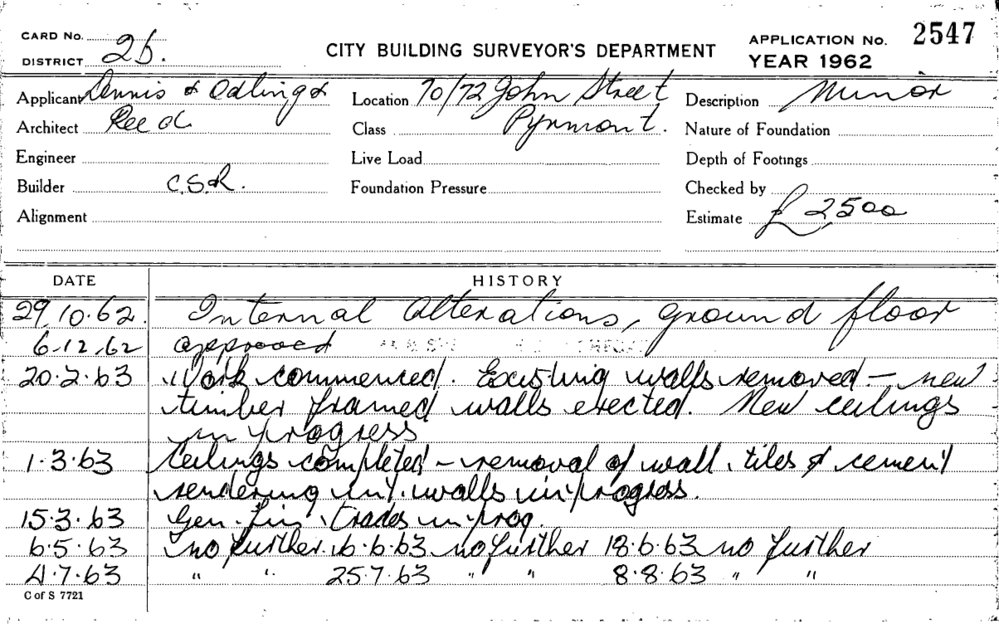 CARD No.
DISTRICT 2b.
CITY BUILDING SURVEYOR'S DEPARTMENT
APPLICATION No. 2547
YEAR 1962
Applicant Dennis & Odling &
Architect Reed
Engineer
Builder C.S.R.
Alignment
Location 70/72 John Street
Class Pyrmont.
Live Load
Foundation Pressure
Description Minor
Nature of Foundation
Depth of Footings
Checked by
Estimate £ 2,500
DATE HISTORY
29.10.62. Internal Alterations, ground floor
6.12.62 approved
20.2.63 Work commenced. Existing walls removed – new
timber framed walls erected. New ceilings
in progress
1.3.63 Ceilings completed – removal of wall tiles & cement
rendering int. walls in progress.
15.3.63 Gen. fin. trades in prog.
6.5.63 no further. 6.6.63 no further 18.6.63 no further
4.7.63 " " 25.7.63 " " 8.8.63 " "
C of S 7721